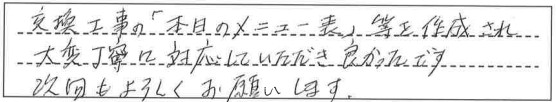 交換工事の「本日のメニュー表」等を作成され
大変丁寧に対応していただき良かったです
次回もよろしくお願いします.